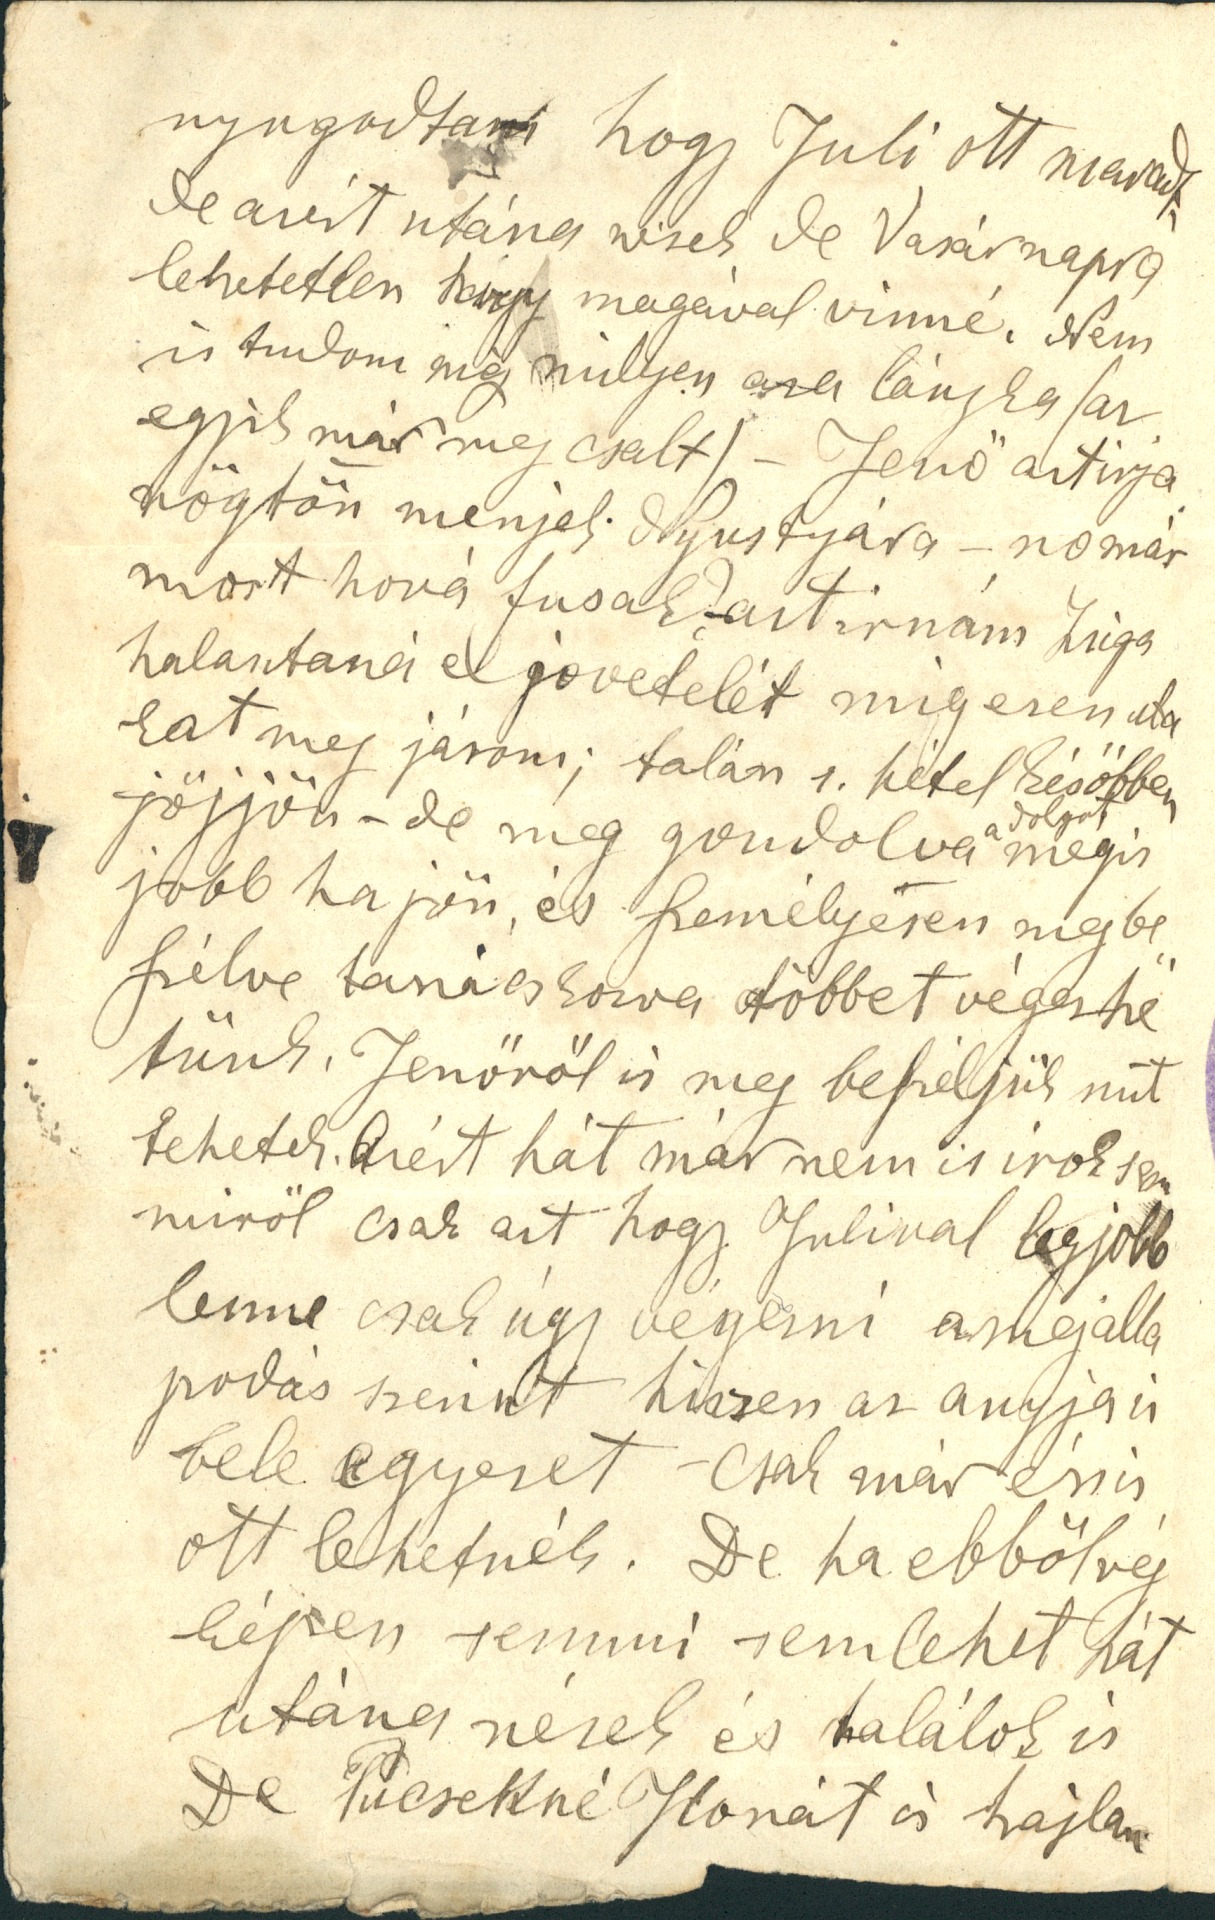 nyugodtam hogy Juli ott maradt,
de azért utána nézek de Vasárnapra
lehetetlen hogy magával vinné. Nem
is tudom míg milyen az a lányka (az
egyik már meg csalt) – Jenő aztirja
rögtön menjek Nyustyára – no már
most hová fusak? azt irnám Zsiga
halasztaná el jövetelét mig ezen uta
kat meg járom; talán 1. hétel későbben
jöjjön – de meg gondolva a dolgot mégis
jobb ha jön, és személyesen megbe
szélve tanácskozva többet végezhe
tünk. Jenőről is meg beszéljük mit
tehetek. Azért hát már nem is irok sem
miröl csak azt hogy Julival legjobb
lenne csak úgy végezni a megálla
podás szerint hiszen az anyja is
bele egyezet – csak már én is
ott lehetnék. De ha ebből vég
képen semmi sem lehet hát
utána nézek és találok is
De Tücsekné Ilonát is hajlan